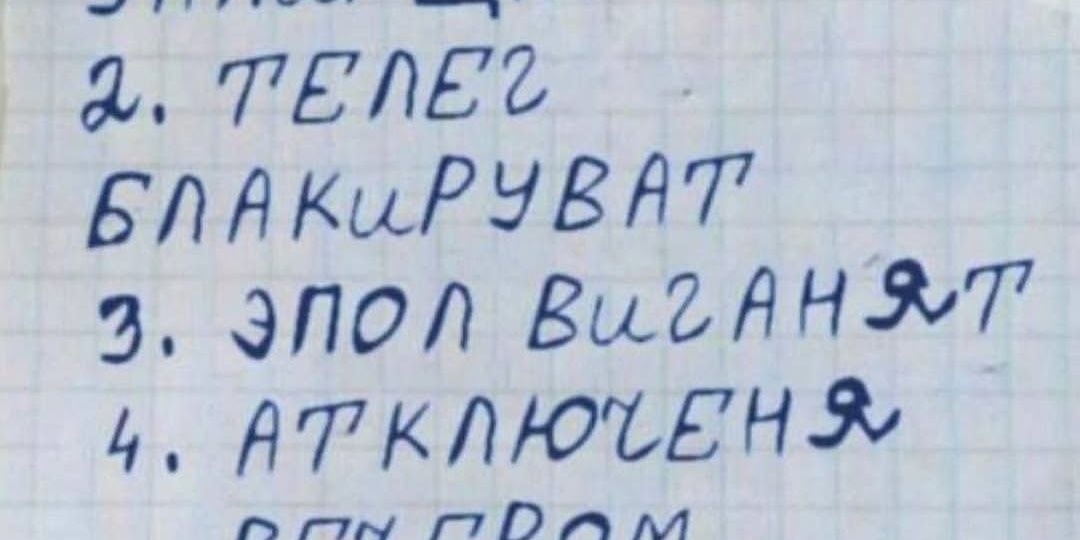 2. ТЕЛЕГ
БЛАКиРУВАТ
3. ЭПОЛ ВиГАНЯТ
4. АТКЛЮЧЕНЯ